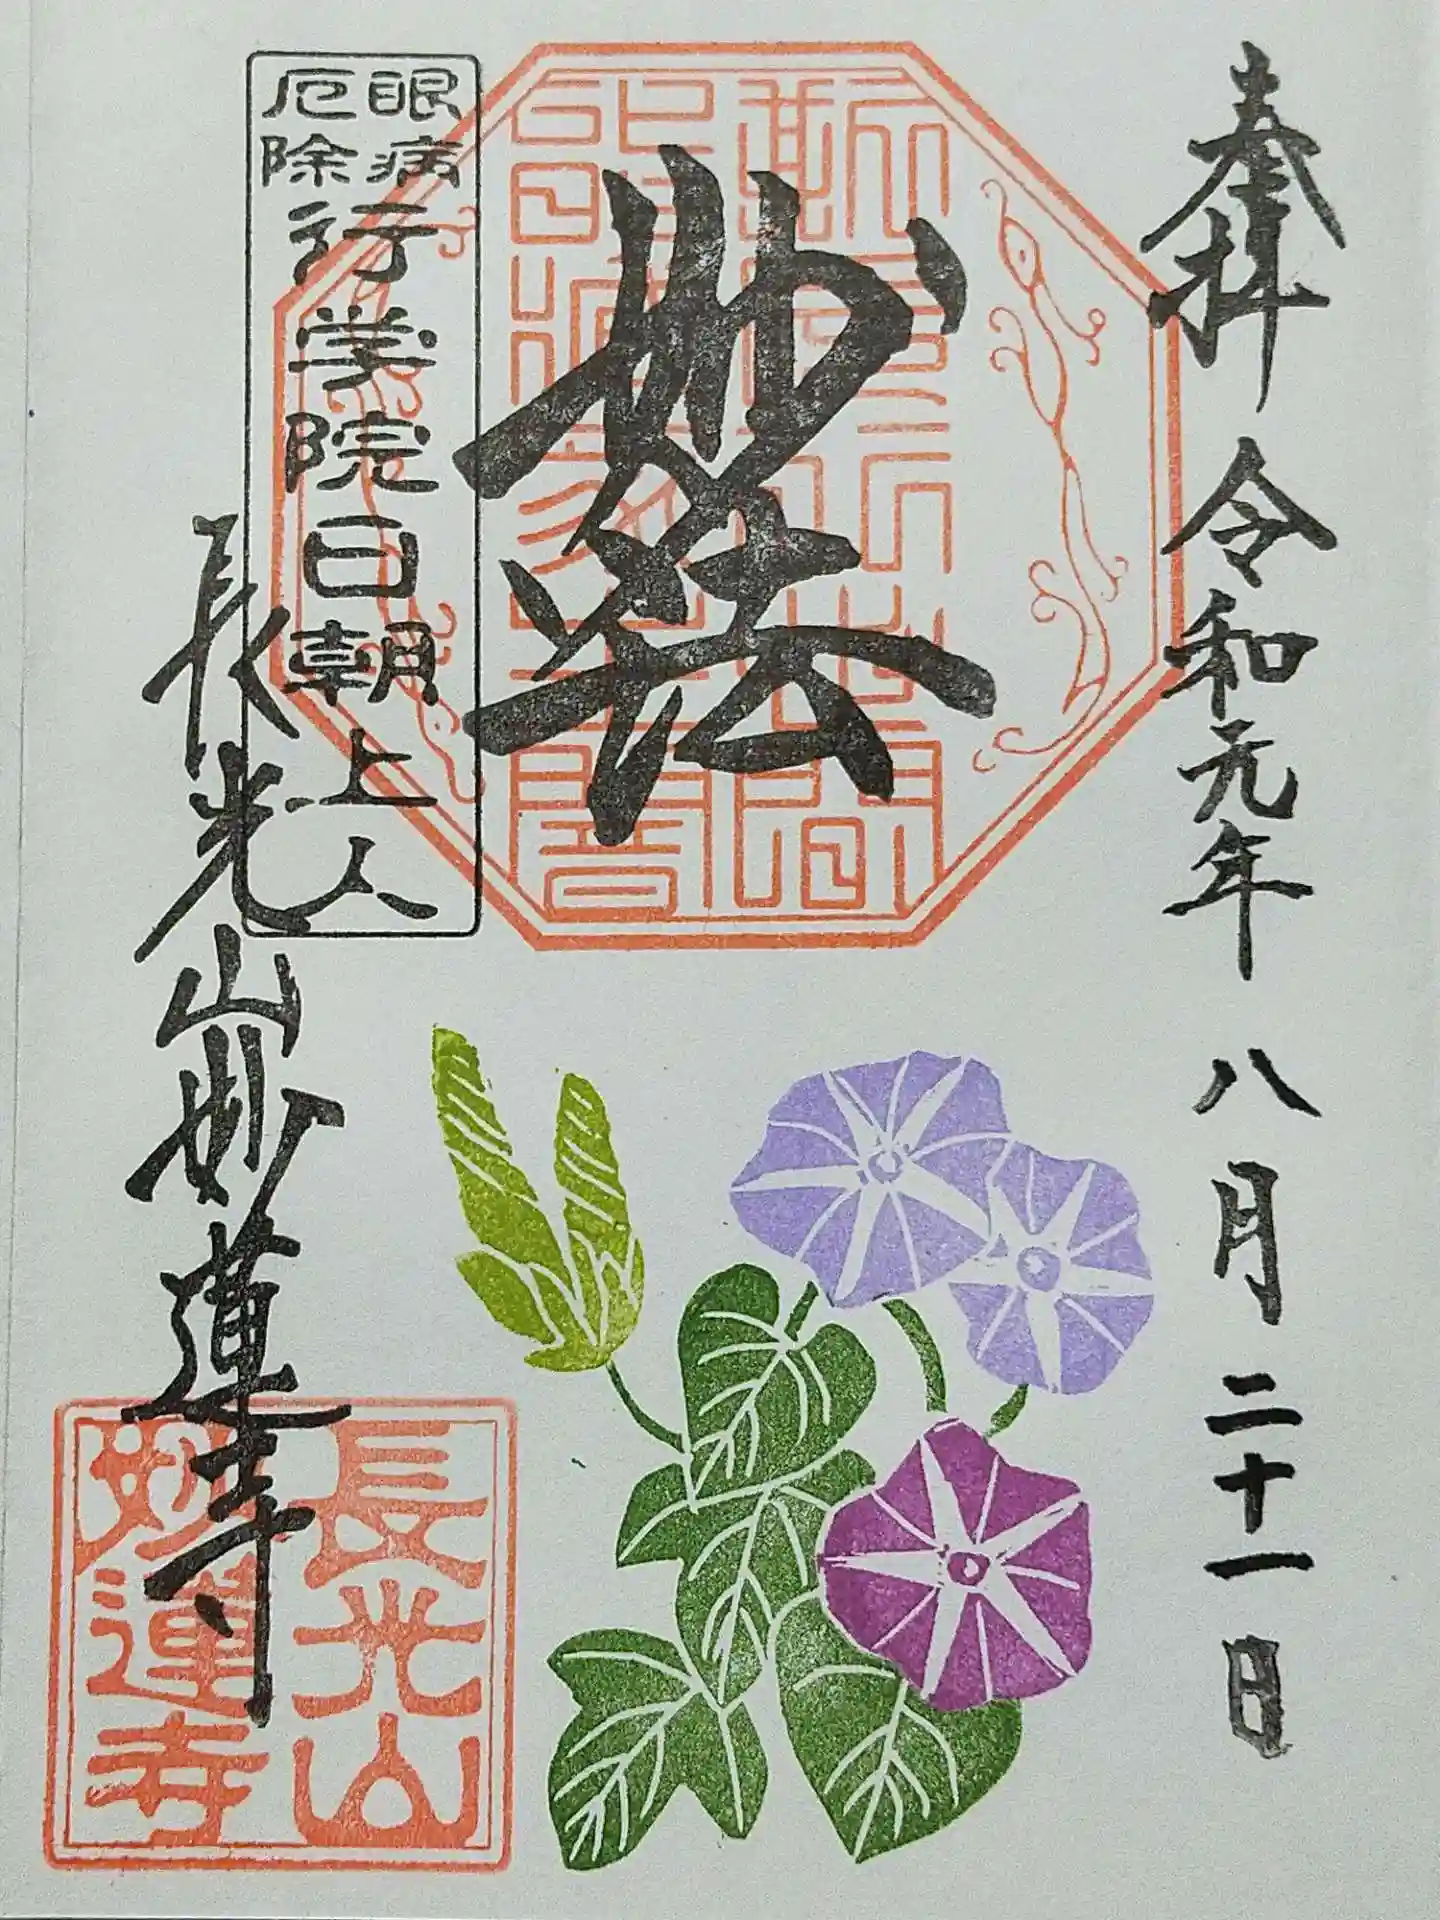 奉拝 令和元年 八月 二十一日
妙法
眼病
厄除
行学院日朝上人
長光山妙蓮寺
長光山
妙蓮寺